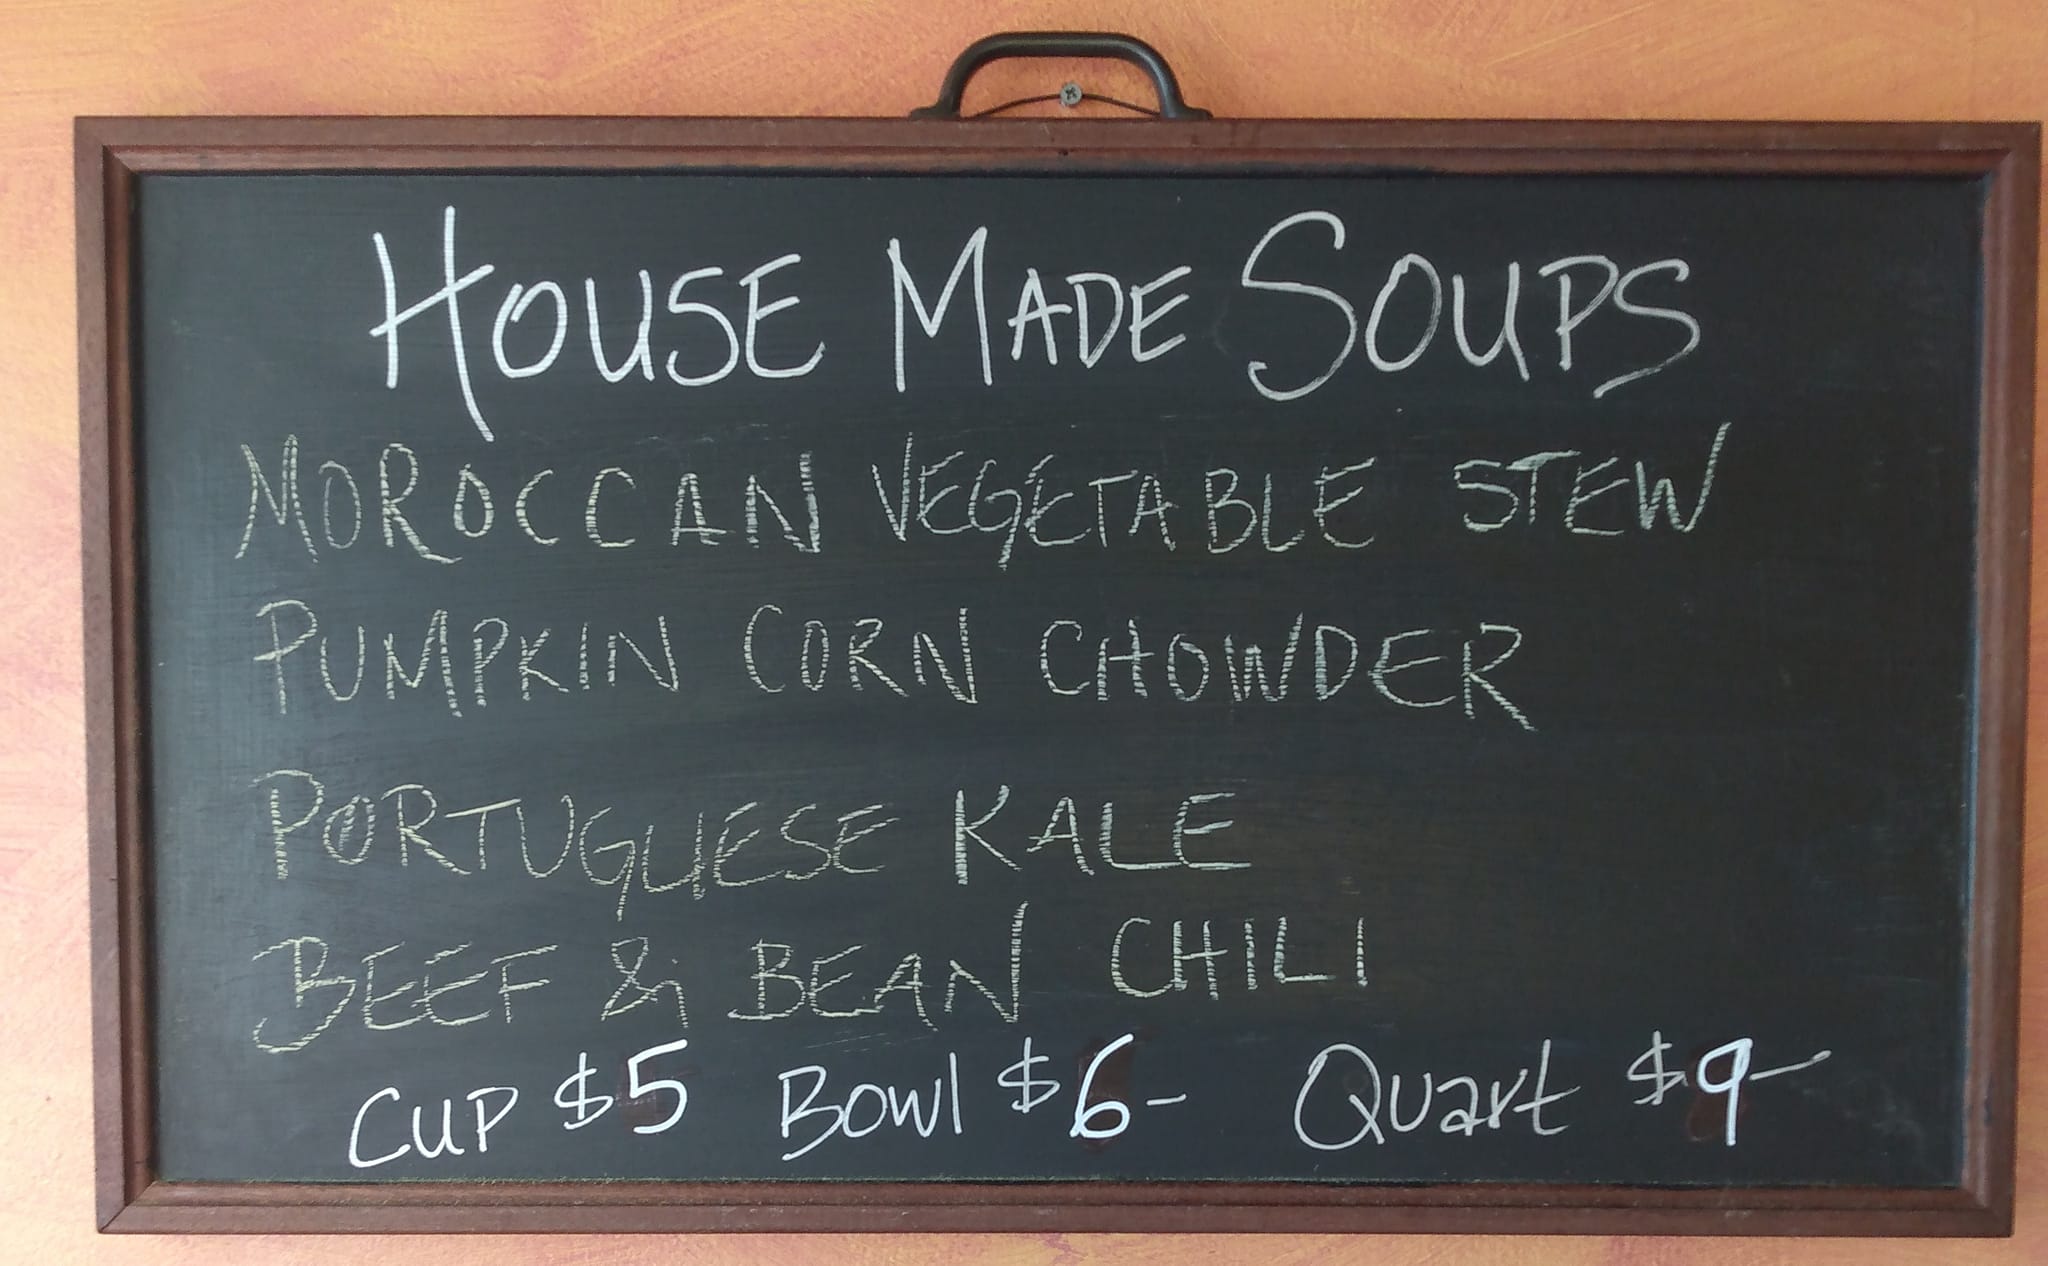 HOUSE MADE SOUPS
MOROCCAN VEGETABLE STEW
PUMPKIN CORN CHOWDER
PORTUGUESE KALE
BEEF & BEAN CHILI
CUP $5 BOWl $6- QUart $9-